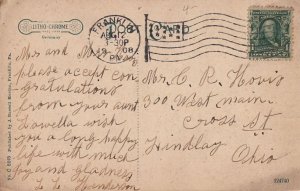 LITHO-CHROME
Germany
FRANKLIN
AUG 12
-30P
1908
PA.
Mr and Mrs
please accept con
gratulations
from your aunt
Louella wish
you a long happy
life with much
joy and gladness
Henderson
Mr. C. R. Hovis
300 West main
Cross St
Findlay
Ohio